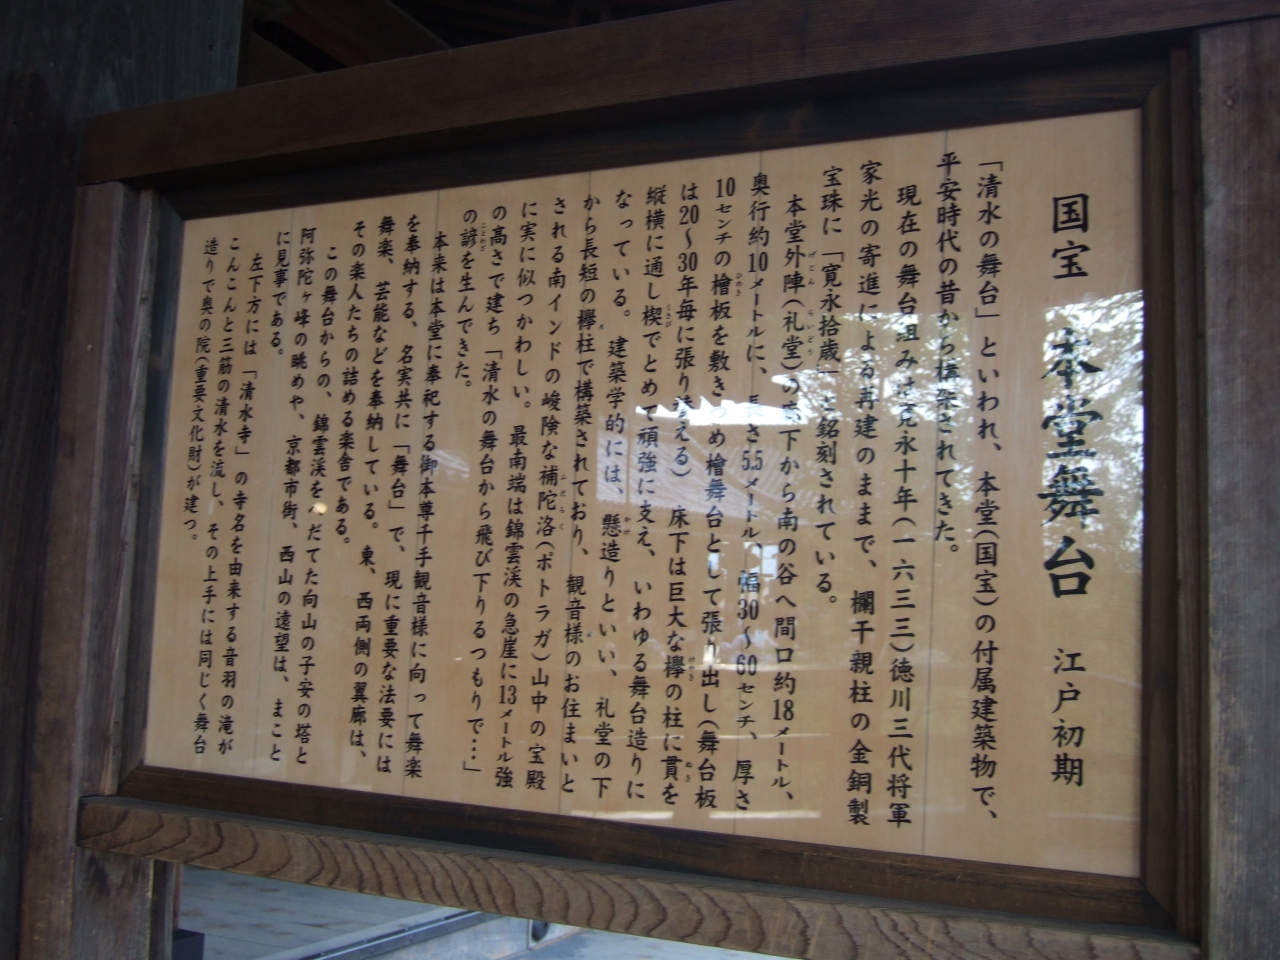 国宝 本堂舞台 江戸初期
「清水の舞台」といわれ、本堂(国宝)の付属建築物で、
平安時代の昔から されてきた。
現在の舞台組みは寛永十年(一六三三)徳川三代将軍
家光の寄進による再建のままで、欄干親柱の金銅製
宝珠に「寛永拾歳」と銘刻されている。
本堂外陣(礼堂)の床下から南の谷へ間口約18メートル、
奥行約10メートルに、長さ5.5メートル、幅30〜60センチ、厚さ
10センチの檜板を敷きつめ檜舞台として張り出し(舞台板
は20〜30年毎に張り替える) 床下は巨大な欅の柱に貫を
縦横に通し楔でとめて頑強に支え、いわゆる舞台造りに
なっている。建築学的には、懸造りといい、礼堂の下
から長短の欅柱で構築されており、観音様のお住まいと
される南インドの峻険な補陀洛(ポトラガ)山中の宝殿
に実に似つかわしい。最南端は錦雲渓の急崖に13メートル強
の高さで建ち「清水の舞台から飛び下りるつもりで…」
の諺を生んできた。
本来は本堂に奉祀する御本尊千手観音様に向って舞楽
を奉納する、名実共に「舞台」で、現に重要な法要には
舞楽、芸能などを奉納している。東、西両側の翼廊は、
その楽人たちの詰める楽舎である。
この舞台からの、錦雲渓をへだてた向山の子安の塔と
阿弥陀ヶ峰の眺めや、京都市街、西山の遠望は、まこと
に見事である。
左下方には「清水寺」の寺名を由来する音羽の滝が
こんこんと三筋の清水を流し、その上手には同じく舞台
造りで奥の院(重要文化財)が建つ。